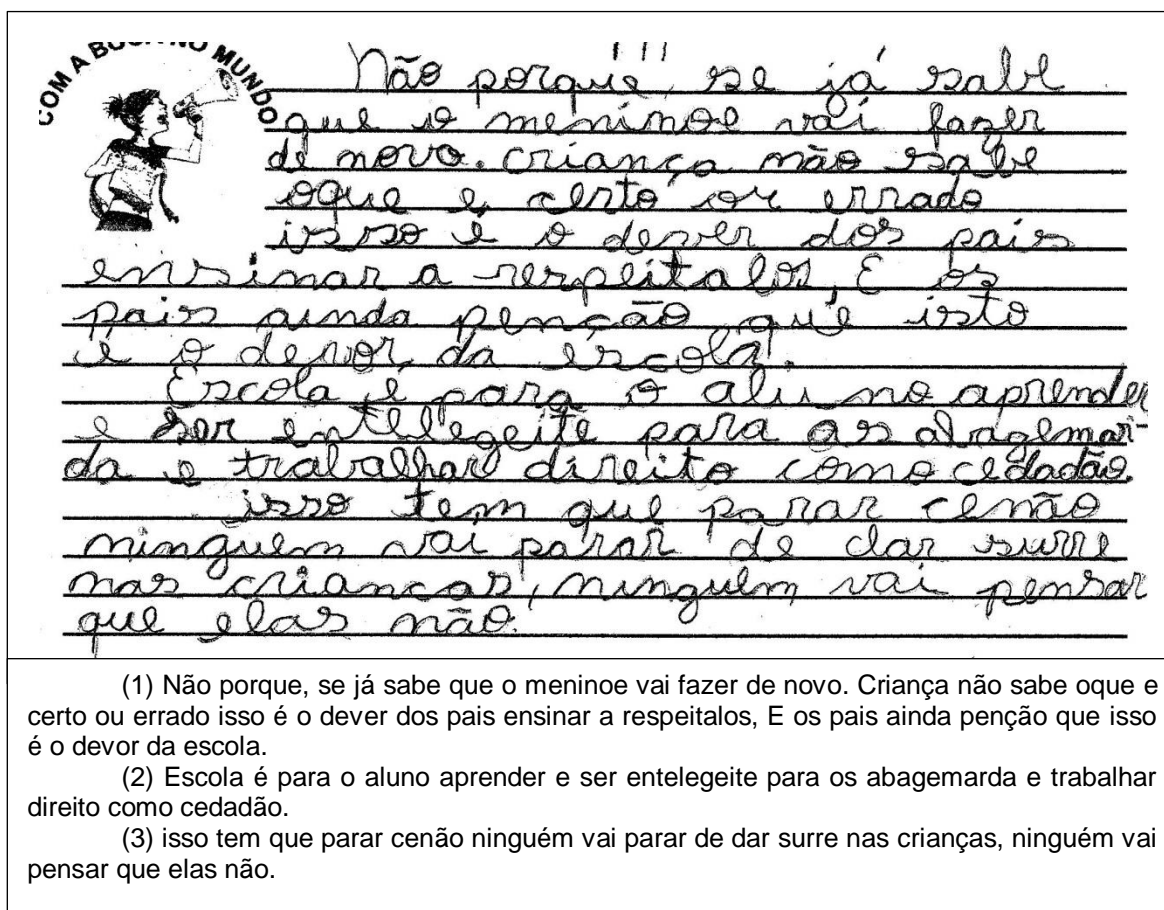 COM A BOCA NO MUNDO
Não porque, se já sabe
que o meninoe vai fazer
de novo. criança não sabe
oque e certo ou errado
isso é o dever dos pais
ensinar a respeitalos, E os
pais ainda penção que isto
é o devor da escola.
Escola é para o aluno aprender
e ser entelegeite para os abagemar-
da e trabalhar direito como cedadão.
isso tem que parar cenão
ninguem vai parar de dar surre
nas crianças, ninguém vai pensar
que elas não.
(1) Não porque, se já sabe que o meninoe vai fazer de novo. Criança não sabe oque e
certo ou errado isso é o dever dos pais ensinar a respeitalos, E os pais ainda penção que isso
é o devor da escola.
(2) Escola é para o aluno aprender e ser entelegeite para os abagemarda e trabalhar
direito como cedadão.
(3) isso tem que parar cenão ninguém vai parar de dar surre nas crianças, ninguém vai
pensar que elas não.